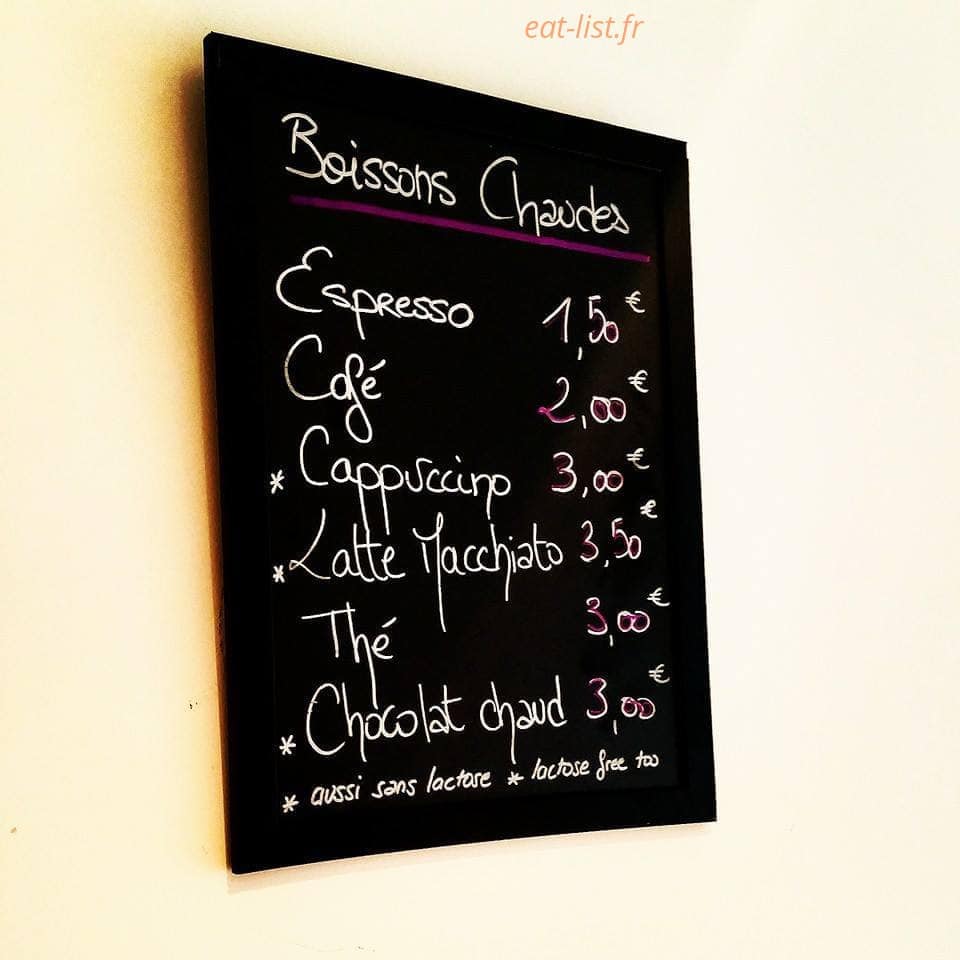 eat-list.fr
Boissons Chaudes
Espresso 1,50 €
Café 2,00 €
* Cappuccino 3,00 €
* Latte Macchiato 3,50 €
Thé 3,00 €
* Chocolat chaud 3,00 €
* aussi sans lactose * lactose free too